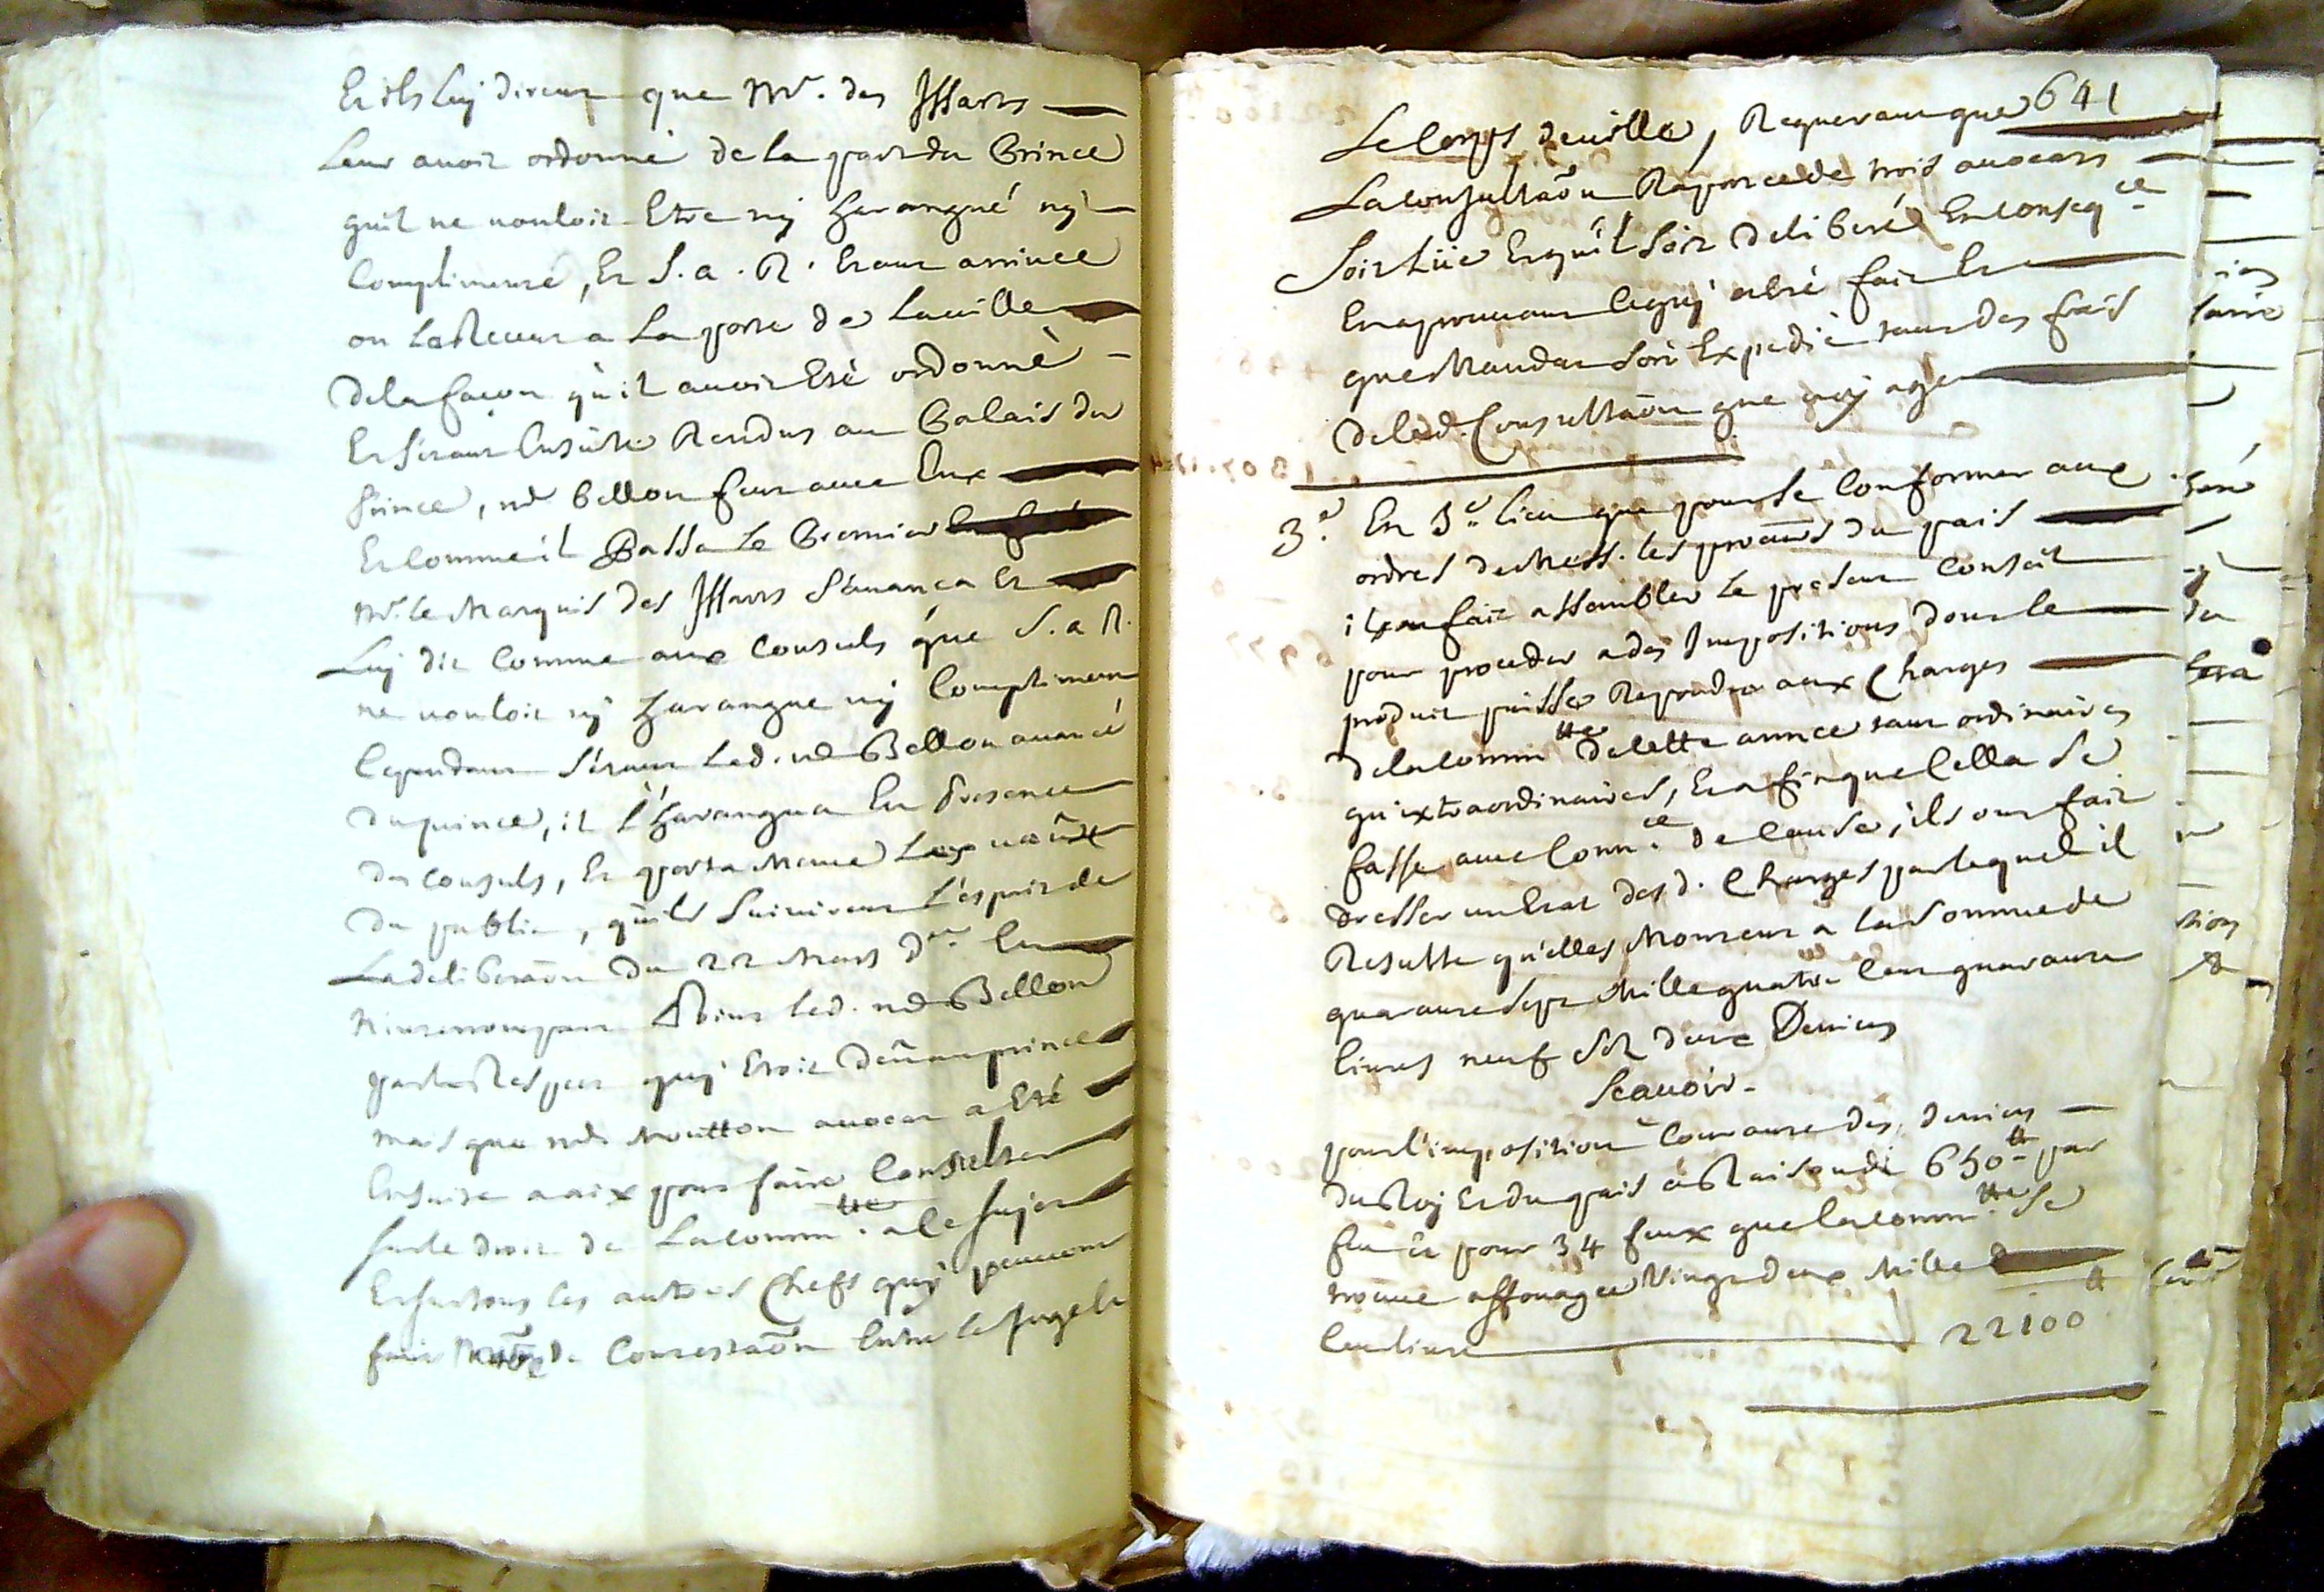 Et ils luy dirent que Mr. des Issarts
leur avoit ordonné de la part du Prince
quil ne vouloit Etre ny harangué ny
Complimenté, Et S. a. R. Etant arrivée
on la Receut a la porte de la ville
de la facon qu'il avoit Eté ordonné
Et s'etant Ensuite Rendus au Palais du
prince, me Bellon feut avec Eux
Et comme il Passa le Premier
Mr. le Marquis des Issarts s'avança Et
Luy dit Comme aux Consuls que S. a R.
ne vouloit ny harangue ny Compliment
Cependant s'etant led. me Bellon avancé
du prince, il l'harangua En presence
des consuls, Et porta Meme Les vœux
du public, qu'ils suivirent l'esprit de
La deliberaōn du 22 Mars der. En
n'interrompant Point led. me Bellon
par le Respect quy Etoit deû au prince
mais que me Moutton avocat a Eté
Ensuite a aix pour faire Consulter
sur le droit de La comm.tté a Ce sujet
Et sur tous les autres Chefs quy peuvent
faire de Contestaōn Entre le Juge Et
641
Le Corps de ville, Requerant que
La Consultaōn Raportée de trois avocats
Soit Lüe Et qu'il soit deliberé En conseq.ce
En aprouvant Ce quy a eté fait Et
que Mandat soit Expedié tant des frais
de lad. Consultaōn que voyage
3.e En 3.e lieu que pour se Conformer aux
ordres de Mess. les procūrs du pais
il ont fait assembler Le present Conseil
pour proceder a des Impositions dont le
produit puisse Repondre aux Charges
de la comm.tté de Cette année tant ordinaires
qu'extraordinaires, Et afin que Cella Se
fasse avec Conn.ce de Cause, ils ont fait
dresser un Etat desd. Charges par lequel il
Resulte qu'elles Montent a la Somme de
quarante sept Mille quatre Cent quarante
livres neuf Sol deux Deniers
Scavoir.
pour l'imposition Courante des deniers
du Roy Et du pais a Raison de 650tt par
feu Et pour 34 feux que la comm.tté Se
trouve affouagée Vingt deux Mille
Cent livres 22100tt